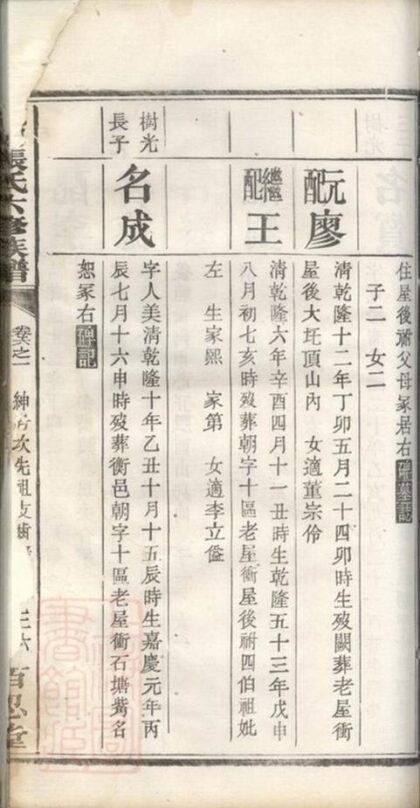 住屋後祔父母冢居右碑墓誌
子二 女二
元配廖
清乾隆十二年丁卯五月二十四卯時生歿闕葬老屋衝
屋後大坵頂山內 女適董宗伶
繼配王
清乾隆六年辛酉四月十一丑時生乾隆五十三年戊申
八月初七亥時歿葬朝字十區老屋衝屋後祔四伯祖妣
左 生家熙 家第 女適李立謚
樹光
長子
名成
字人美清乾隆十年乙丑十月十五辰時生嘉慶元年丙
辰七月十六申時歿葬衡邑朝字十區老屋衝石塘觜名
恕冢右碑記
張氏六修族譜
卷之一
紳房次先祖支
百忍堂